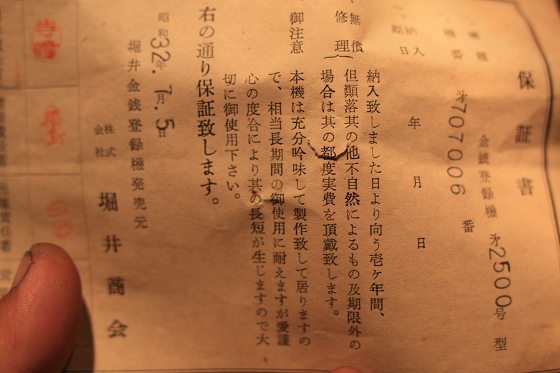 保証書
機種 金銭登録機 㐧2500号型
機番 㐧707006番
納入期日 年 月 日
無償修理 納入致しました日より向う壱ヶ年間、
但顚落其の他不自然によるもの及期限外の
場合は其の都度実費を頂戴致します。
御注意 本機は充分吟味して製作致して居りますの
で、相当長期間の御使用に耐えますが愛護
心の度合により其の長短が生じますので大
切に御使用下さい。
右の通り保証致します。
昭和32年7月5日
堀井金銭登録機発売元
株式会社 堀井商会